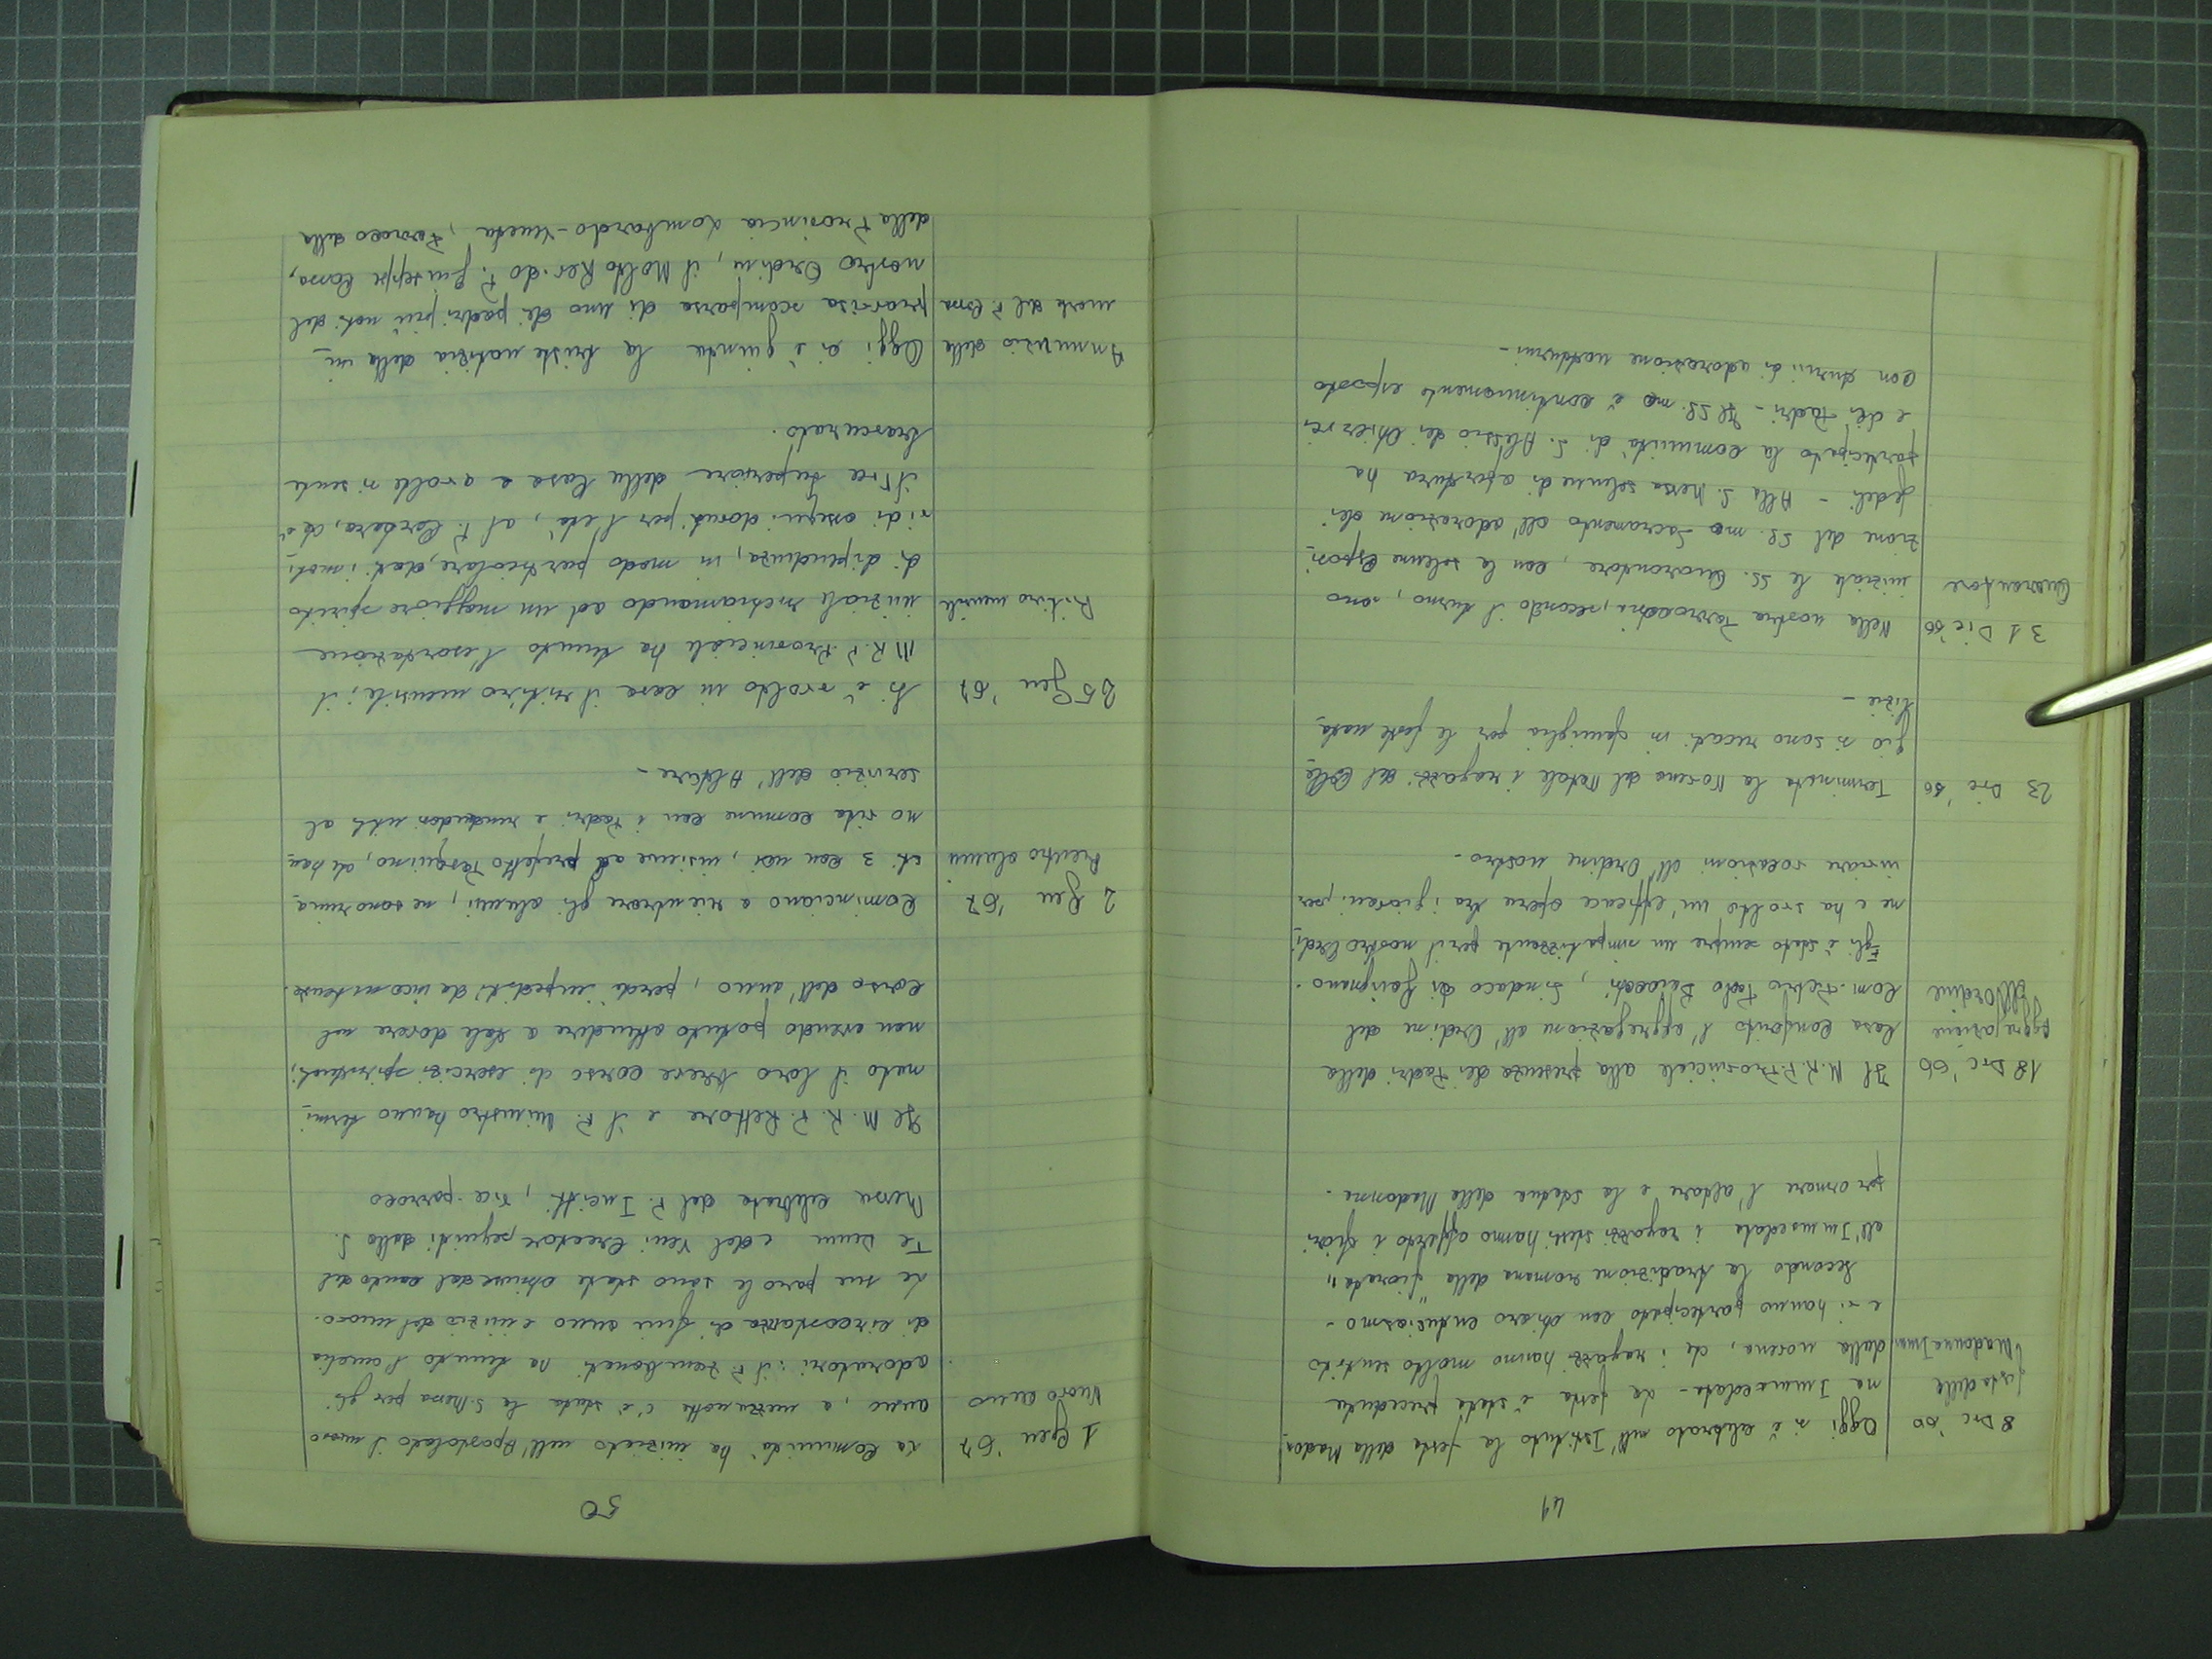 49
8 Dic '66
festa della
Madonna Imm.
Oggi si è celebrato nell'Istituto la festa della Madon_
na Immacolata - La festa è stata preceduta
dalla novena, che i ragazzi hanno molto sentito
e vi hanno partecipato con chiaro entusiasmo -
Secondo la tradizione romana della "fiorata"
all'Immacolata i ragazzi stessi hanno offerto i fiori
per ornare l'altare e la statua della Madonna.
18 Dic '66
Aggregazione
all'Ordine
Il M. R. P. Provinciale alla presenza dei Padri della
Casa conferito l'aggregazione all'Ordine del
Com. Pietro Paolo, Sindaco di
Egli è stato sempre un simpatizzante per il nostro Ordi_
ne e ha svolto un'efficace opera tra i giovani per
inviare vocazioni all'Ordine nostro -
23 Dic '66
Terminata la Novena del Natale i ragazzi del Colle_
gio si sono recati in famiglia per le feste nata_
lizie -
31 Dic '66
Quarantore
Nella nostra Parrocchia, secondo il turno, sono
iniziate le SS. Quarantore, con la solenne esposi_
zione del SS.mo Sacramento all'adorazione dei
fedeli - Alla S. Messa solenne di apertura ha
partecipato la comunità di S. Alessio dei Chierici
e dei Padri - Il SS.mo è continuamente esposto
con turni di adorazione notturni -
50
1 Gen '67
Nuovo anno
La Comunità ha iniziato nell'Apostolato il nuovo
anno, a mezzanotte c'è stata la S. Messa per gli
adoratori: il P. Zambonati ha tenuto l'omelia
di circostanza di fine anno e inizio del nuovo.
Le sue parole sono state chiuse dal canto del
Te Deum e del Veni Creator seguiti dalla S.
Messa celebrata dal P., vice-parroco
Il M. R. P. Rettore e il P. Ministro hanno termi_
nato il loro breve corso di esercizi spirituali,
non avendo potuto attendere a tale dovere nel
corso dell'anno, perché impediti da incombenze.
2 Gen '67
Rientro alunni
Cominciano a rientrare gli alunni, ne sono rima_
sti 3 con noi, insieme al prefetto Pasquino, che han_
no vita comune con i Padri e rendendosi utili al
servizio dell'Altare -
25 Gen '67
Ritiro mensile
Si è svolto in casa il ritiro mensile; il
M. R. P. Provinciale ha tenuto l'esortazione
iniziale richiamando ad un maggiore spirito
di dipendenza, in modo particolare, dati i moti_
vi di ossequi dovuti per l'età, al P. Cerbara, che è
il Vice Superiore della Casa e a volte si sente
trascurato.
Annunzio della
morte del P. Cossa
Oggi ci è giunta la triste notizia della im_
provvisa scomparsa di uno dei padri più noti del
nostro Ordine, il Molto Rev.do P. Giuseppe Cossa,
della Provincia Lombardo-Veneta, Parroco della